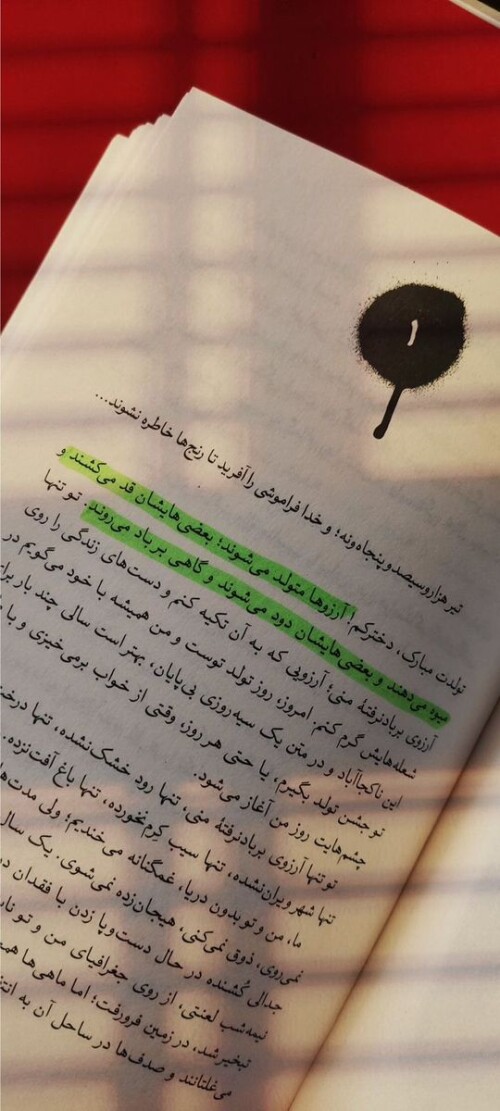 ۱
تیر هزاروسیصدوپنجاه‌ونه؛ و خدا فراموشی را آفرید تا رنج‌ها خاطره نشوند...
تولدت مبارک، دخترکم! آرزوها متولد می‌شوند؛ بعضی‌هایشان قد می‌کشند و
میوه می‌دهند و بعضی‌هایشان دود می‌شوند و گاهی بر باد می‌روند. تو تنها
آرزوی بربادنرفتهٔ منی؛ آرزویی که به آن تکیه کنم و دست‌های زندگی را روی
شعله‌هایش گرم کنم. امروز، روز تولد توست و من همیشه با خود می‌گویم در
این ناکجاآباد و در متن یک سیه‌روزی بی‌پایان، بهتر است سالی چند بار برای
تو جشن تولد بگیرم، یا حتی هر روز، وقتی از خواب برمی‌خیزی و با
چشم‌هایت روز من آغاز می‌شود.
تو تنها آرزوی بربادنرفتهٔ منی، تنها رود خشک‌نشده، تنها درخت
تنها شهر ویران‌نشده، تنها سیب کِرم‌نخورده، تنها باغ آفت‌نزده.
ما، من و تو بدون دریا، غمگنانه می‌خندیم؛ ولی مدت‌ها
نمی‌روی، ذوق نمی‌کنی، هیجان‌زده نمی‌شوی. یک سال
جدالی کُشنده در حال دست‌وپا زدن با فقدان
نیمه‌شب لعنتی، از روی جغرافیای من و تو
تبخیر شد، در زمین فرورفت؛ اما ماهی‌ها
می‌غلتانند و صدف‌ها در ساحل آن به